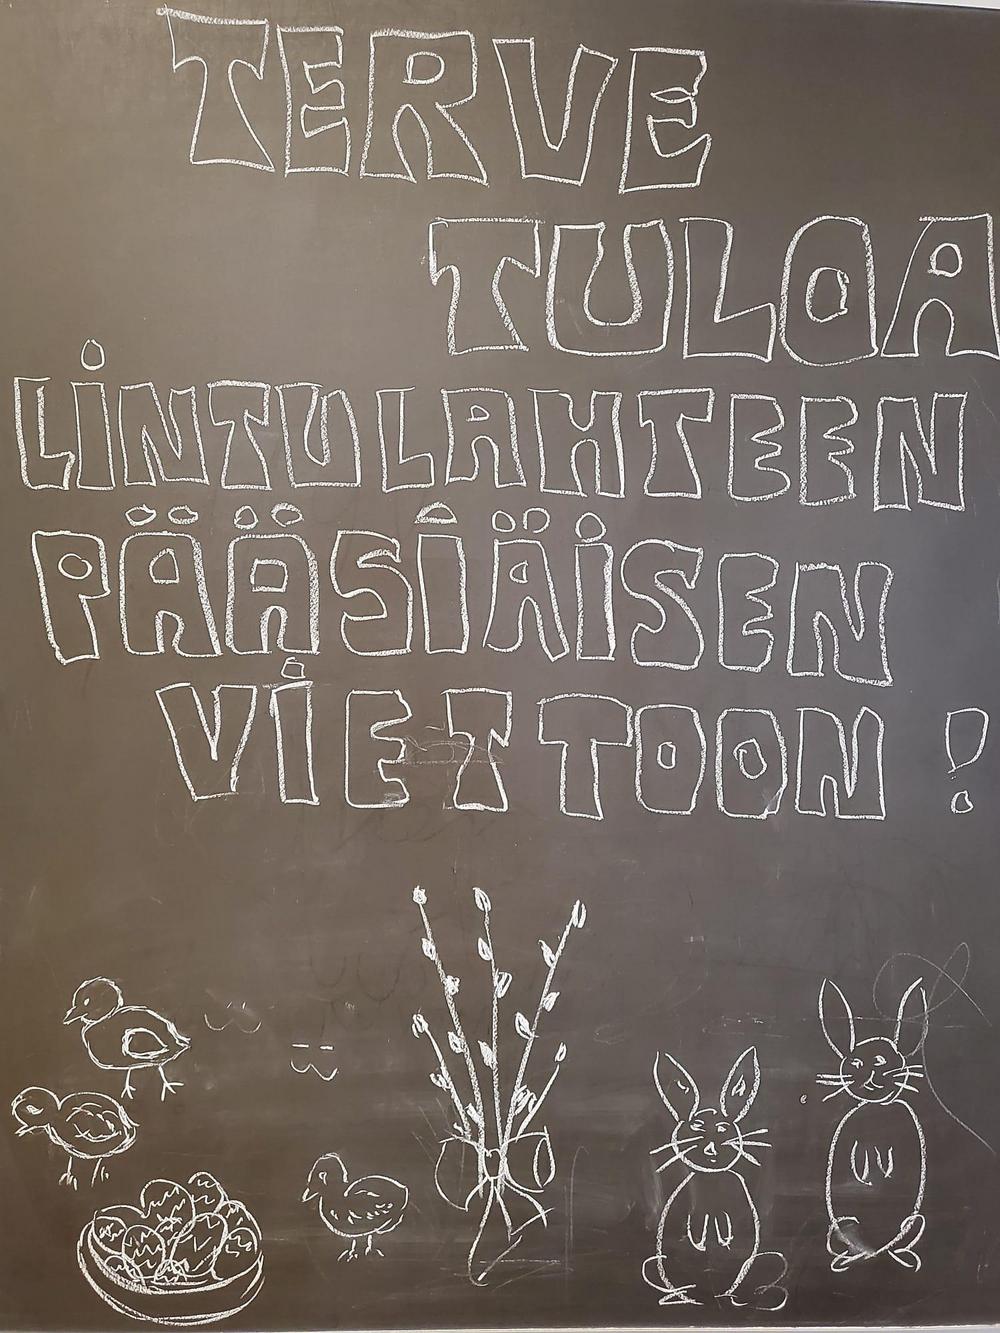 TERVE
TULOA
LiNTULAHTEEN
PÄÄSIÄiSEN
ViETTOON !